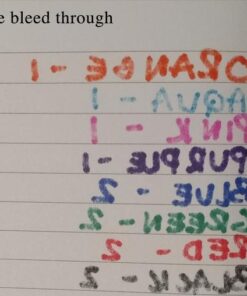 e bleed through
ORANGE - 1
AQUA - 1
PINK - 1
PURPLE - 1
BLUE - 2
GREEN - 2
RED - 2
BLACK - 2